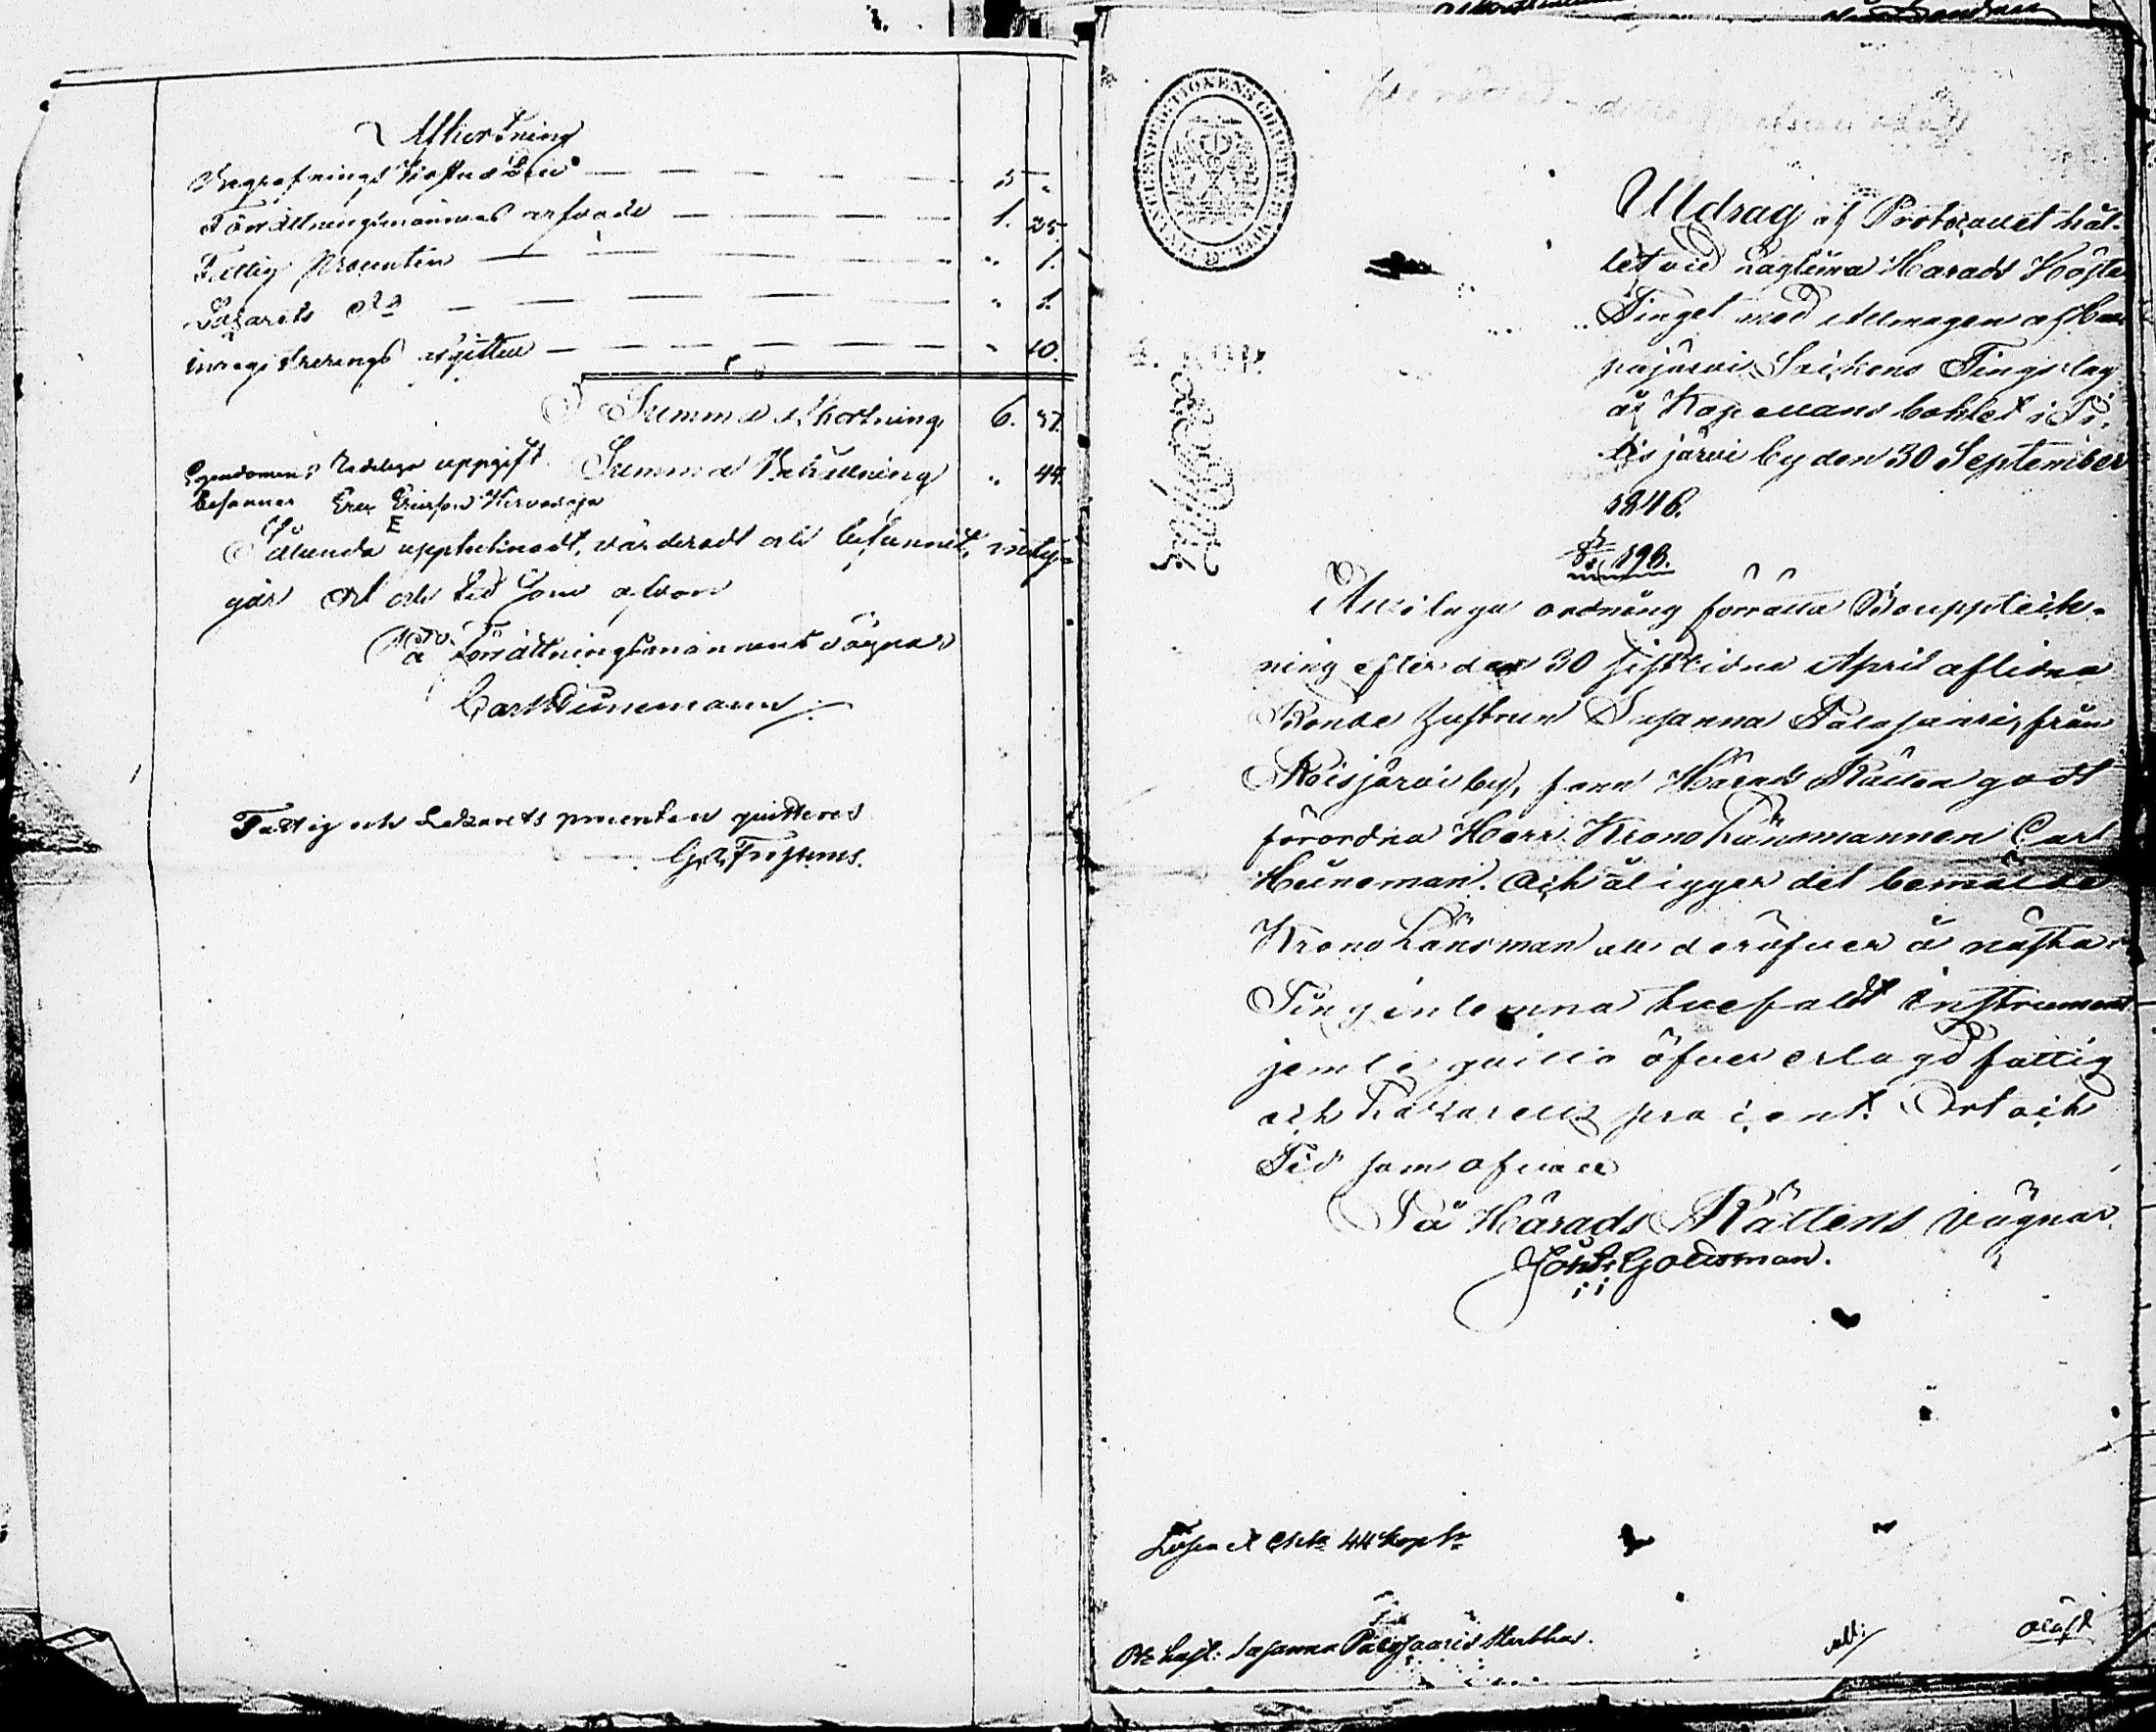 Afkortning
Begrafnings kostnaden — 5 "
Förrättningsmännens arfvode — 1. 25.
Fattig procenten — " 1.
Lazaretts dito — " 1.
inregistrerings afgiften — " 10.
Summa afkortning 6. 37.
Egendomens redeliga uppgift Summa Behållning " 44.
besannar Eric Ericsson
Sålunda upptecknadt, värderadt och befunnit, intygar
ort och tid som ofvan
På förrättningsmannens vägnar
Carl Hünemann
Fattig och Lazaretts procenten quitteras
Utdrag af Protocollet hållet
vid Laglima Härads Höste
Tinget med Allmogen af
pajärvi Sockens Tingslag
å Kapellans bohlet i Pi.
his järvi by den 30 September
1846.
§ 196.
At i laga ordning förrätta Bouppteck-
ning efter den 30 sistlidne April aflidna
Bonde hustrun Susanna Palosaari, från
järvi by, fann Härads Rätten godt
förordna Herr Krono Länsmannen Carl
Hüneman. Och åligger det bemälde
Krono Länsman att deröfver å nästa
Ting inlemna tvefaldt instrument
jemte quitto öfver erlagd fattig
och Lazaretts procent. Ort och
Tid som ofvan
På Härads Rättens vägnar
Joh: Goldsman.
Lösen 44 kop. Sr
Susanna Palosaaris Sterbhus.